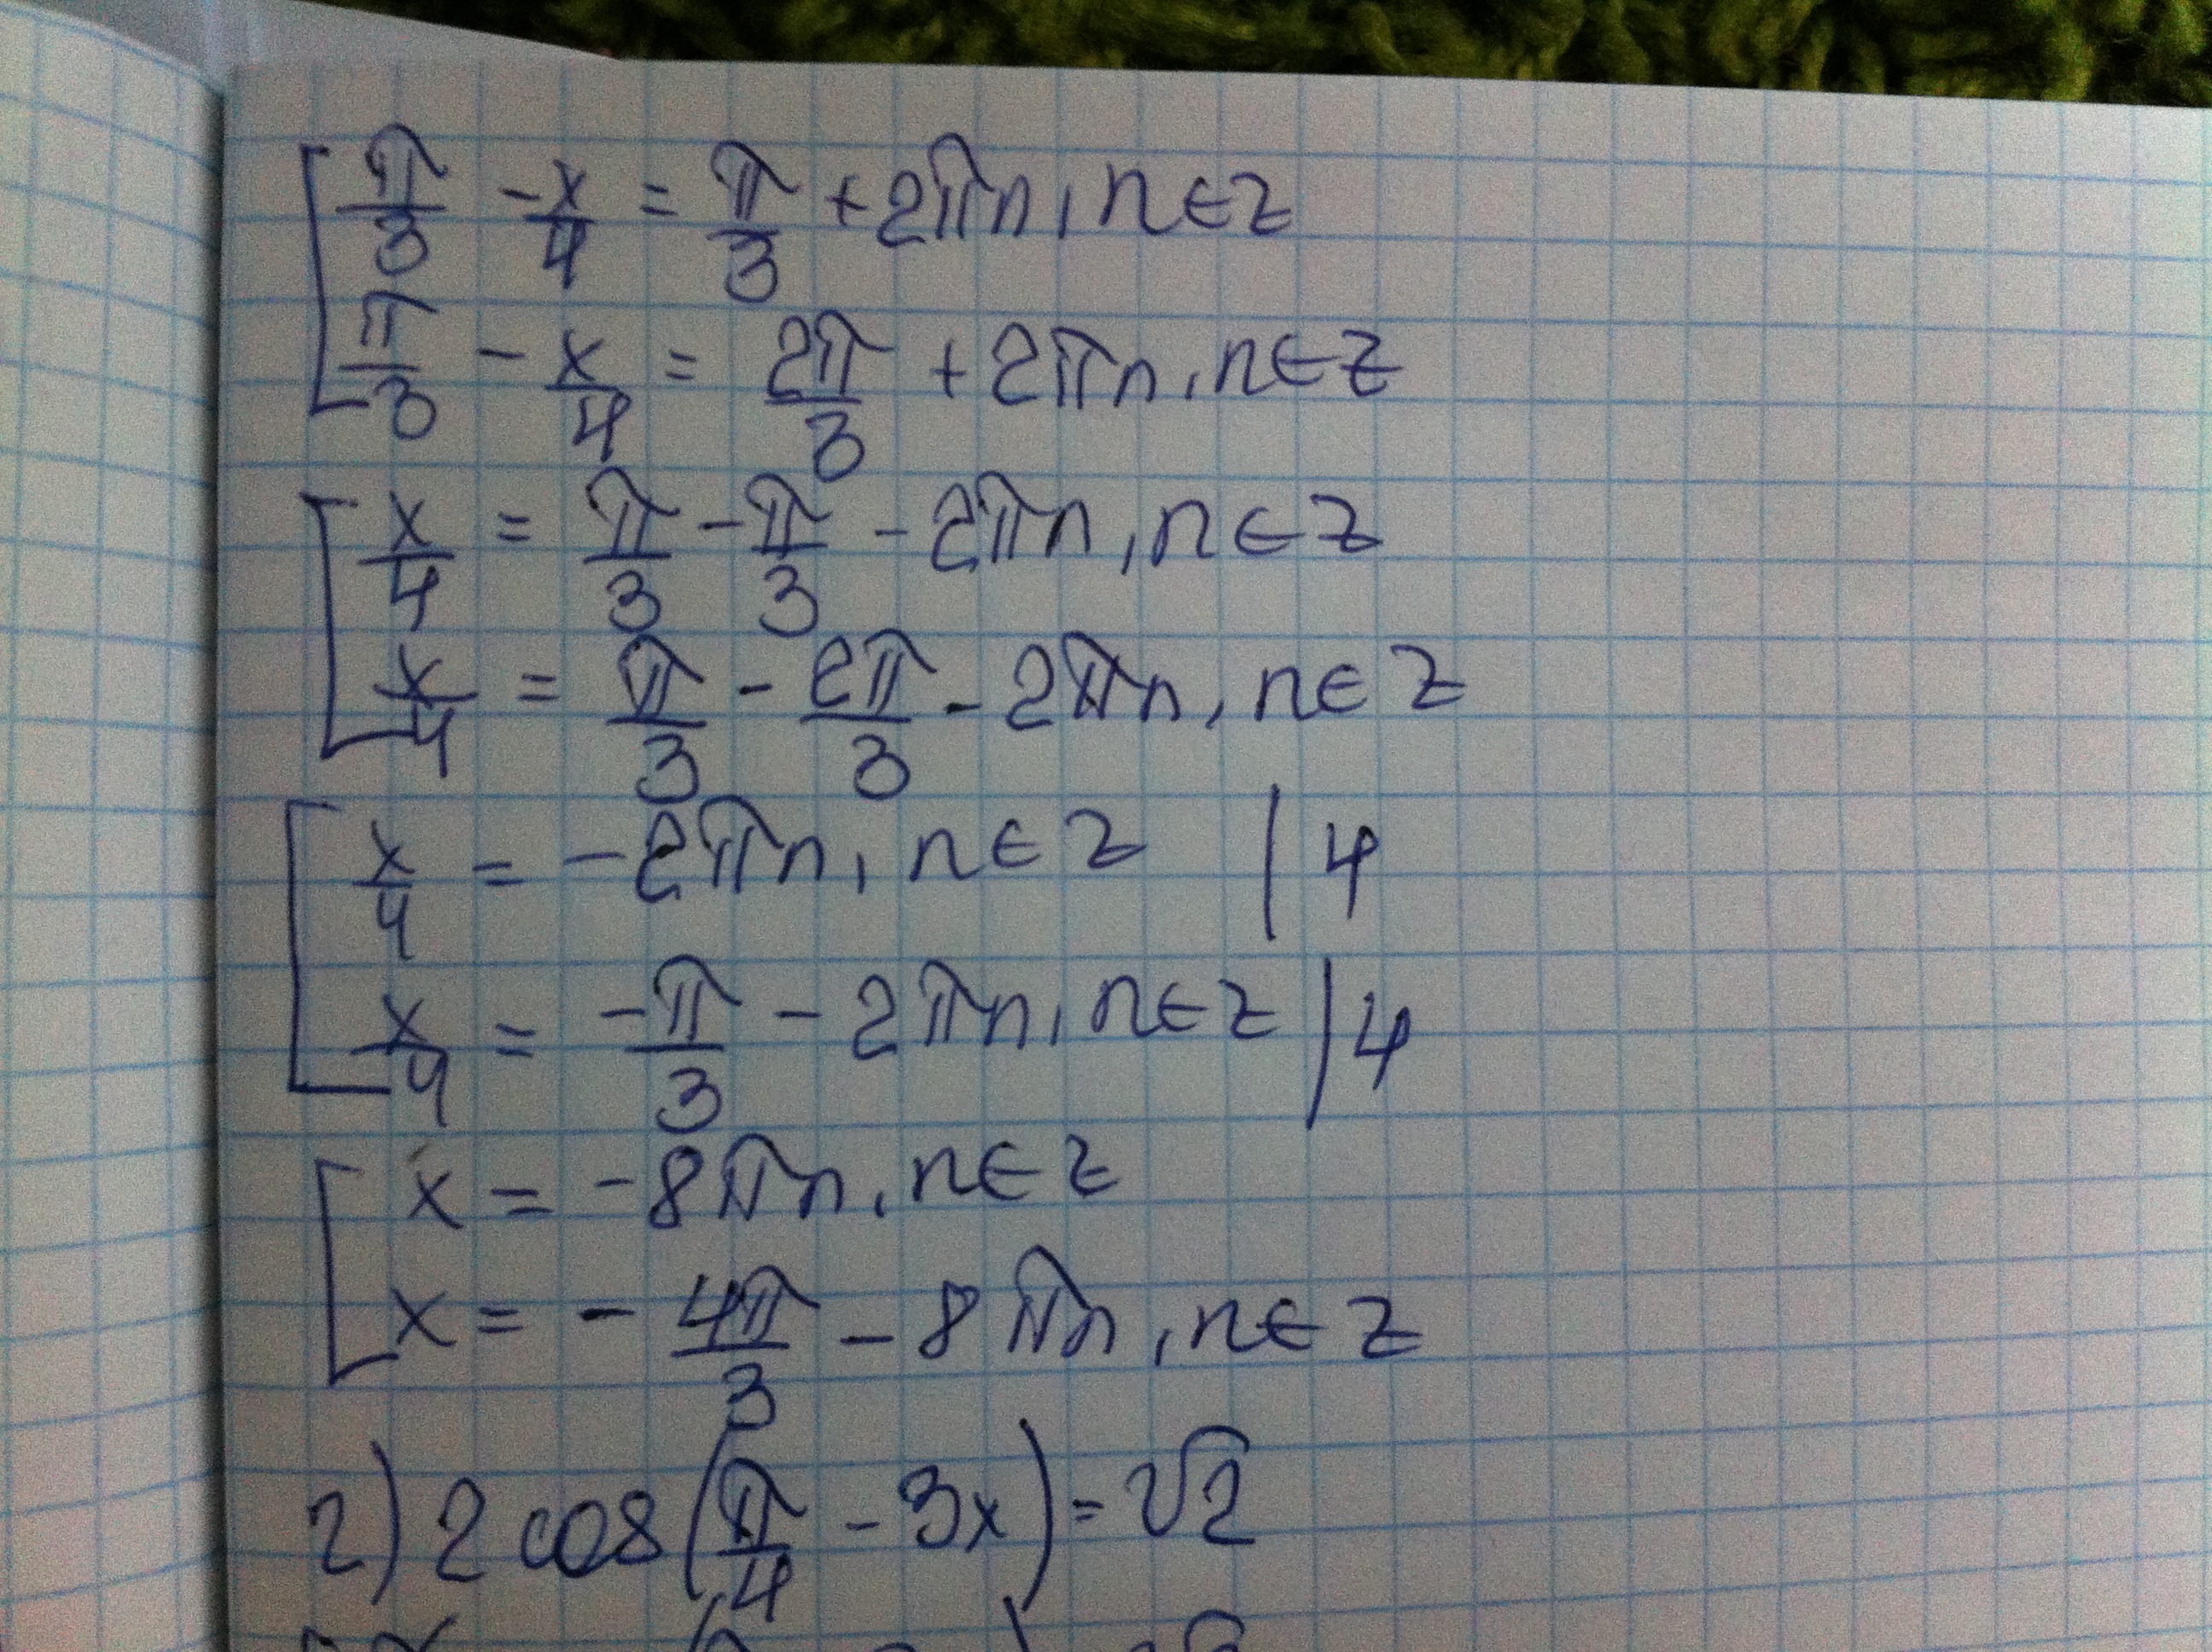 π/3 - x/4 = π/3 + 2πn, n∈Z
π/3 - x/4 = 2π/3 + 2πn, n∈Z
x/4 = π/3 - π/3 - 2πn, n∈Z
x/4 = π/3 - 2π/3 - 2πn, n∈Z
x/4 = -2πn, n∈Z | 4
x/4 = -π/3 - 2πn, n∈Z | 4
x = -8πn, n∈Z
x = - 4π/3 - 8πn, n∈Z
2) 2 cos(π/4 - 3x) = √2